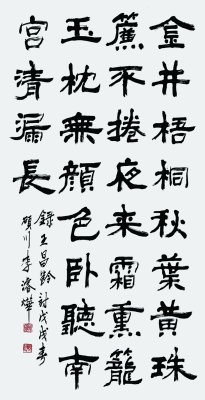 金井梧桐秋葉黃珠
簾不捲夜来霜熏籠
玉枕無顏色臥聽南
宮清漏長
錄王昌齡詩戊戌春
川李